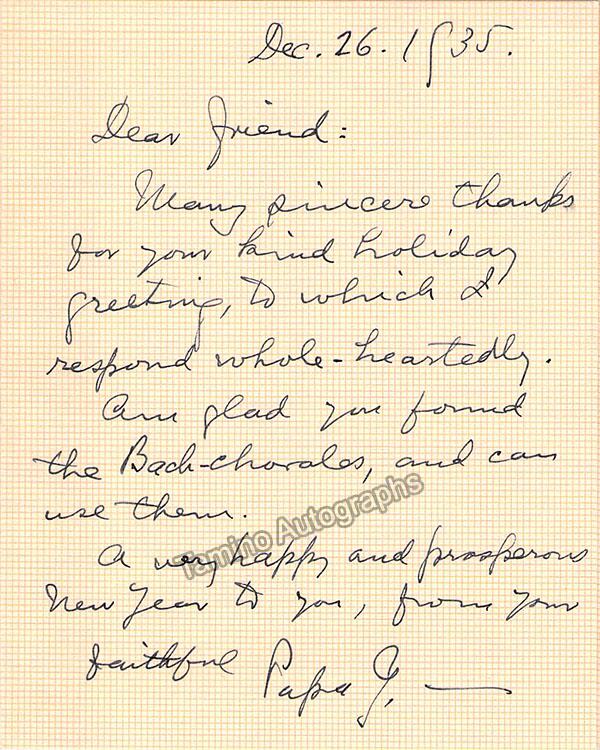 Dec. 26. 1935.
Dear friend:
Many sincere thanks
for your kind holiday
greeting, to which I
respond whole-heartedly.
Am glad you found
the Bach-chorales, and can
use them.
Tamino Autographs
A very happy and prosperous
New Year to you, from your
faithful Papa G.